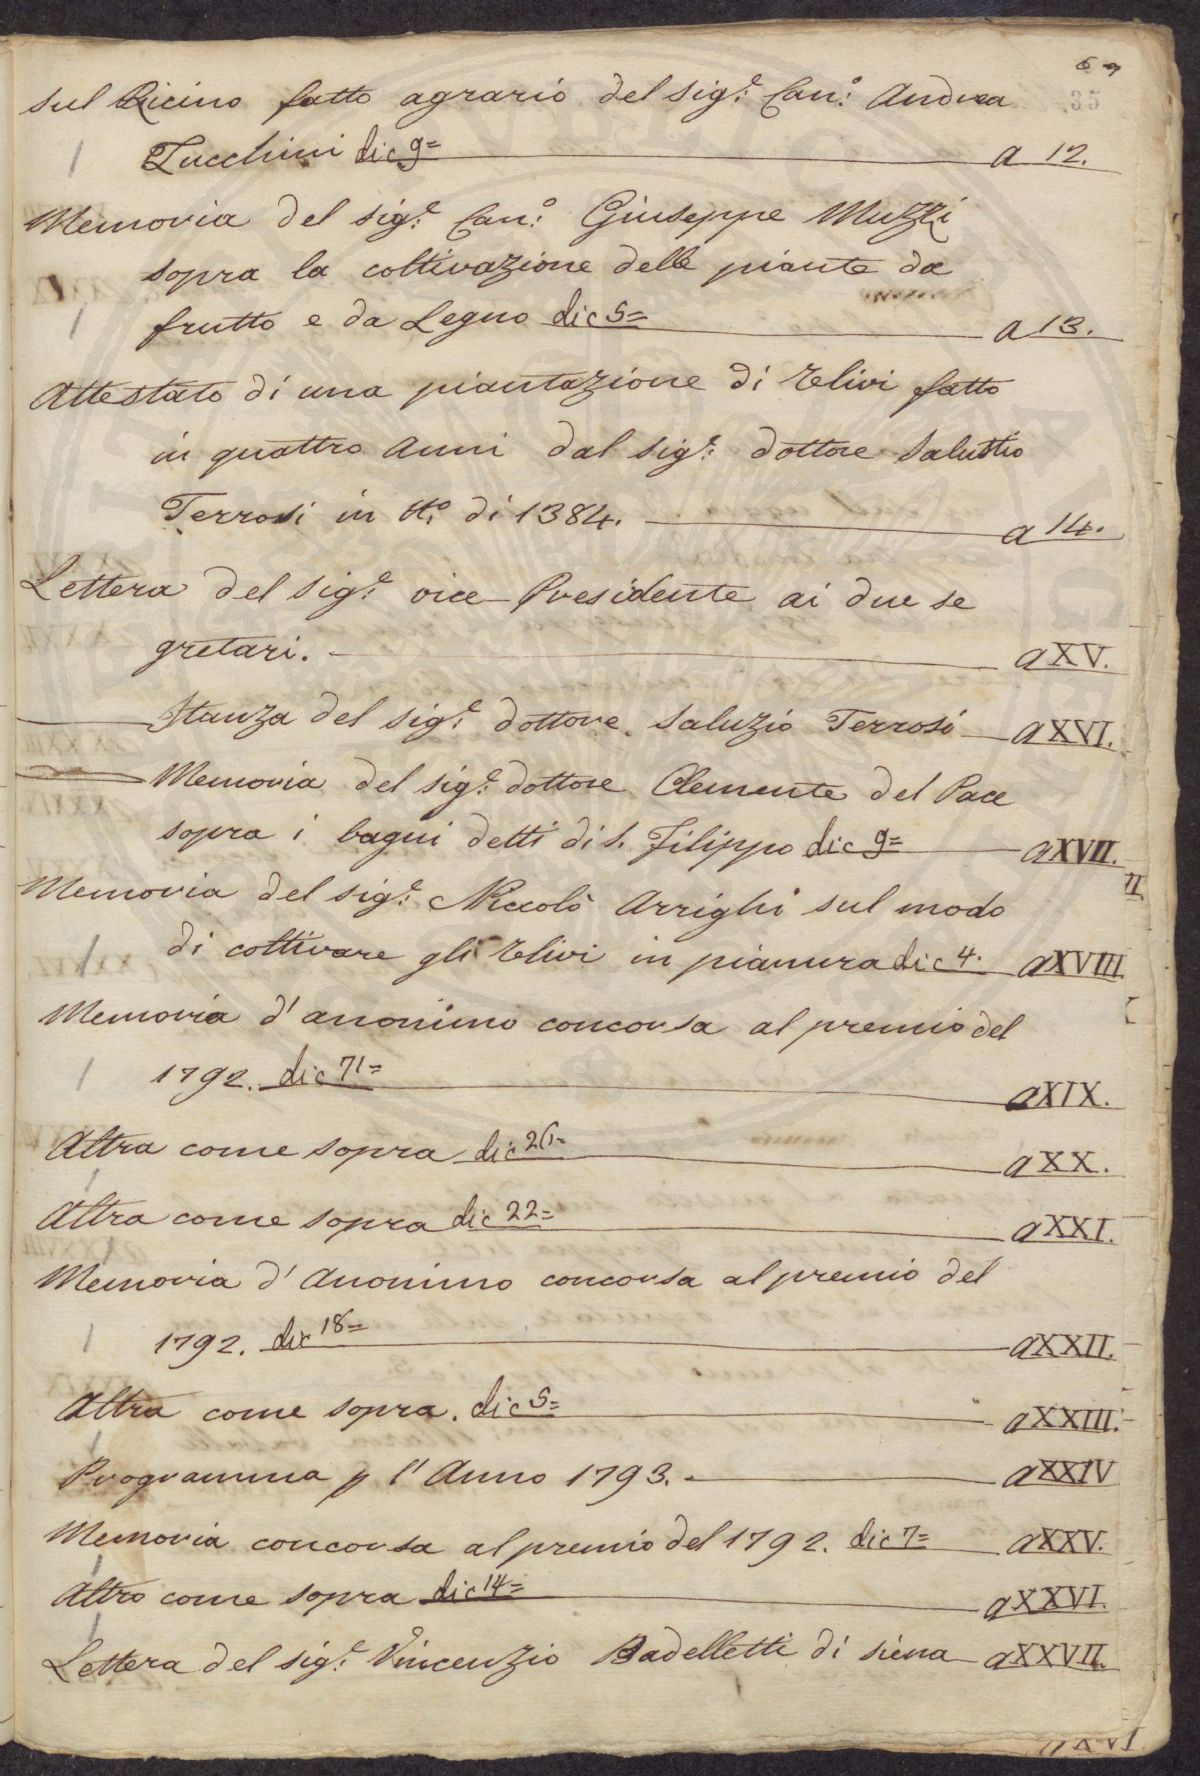 69
35
sul Ricino fatto agrario del sig.e Can.o Andrea
Zucchini di c 9= a 12.
Memoria del sig.e Can.o Giuseppe Muzzi
sopra la coltivazione delle piante da
frutto e da Legno di c 5= a 13.
Attestato di una piantazione di Ulivi fatto
in quattro Anni dal sig.e dottore Salustio
Terrosi in N.o di 1384. a 14.
Lettera del sig.e vice-Presidente ai due se
gretari. a XV.
Stanza del sig.e dottore Saluzio Terrosi a XVI.
Memoria del sig.e dottore Clemente del Pace
sopra i bagni detti di S. Filippo di c 9= a XVII.
Memoria del sig.e Niccolò Arrighi sul modo
di coltivare gli Ulivi in pianura di c 4. a XVIII
Memoria d'anonimo concorsa al premio del
1792. di c 71= a XIX.
Altra come sopra di c 26= a XX.
Altra come sopra di c 22= a XXI.
Memoria d'Anonimo concorsa al premio del
1792. di c 18= a XXII.
Altra come sopra. di c 5= a XXIII.
Programma p l'Anno 1793. a XXIV
Memoria concorsa al premio del 1792. di c 7= a XXV.
Altro come sopra di c 14= a XXVI.
Lettera del sig.e Vincenzio Badelletti di siena a XXVII.